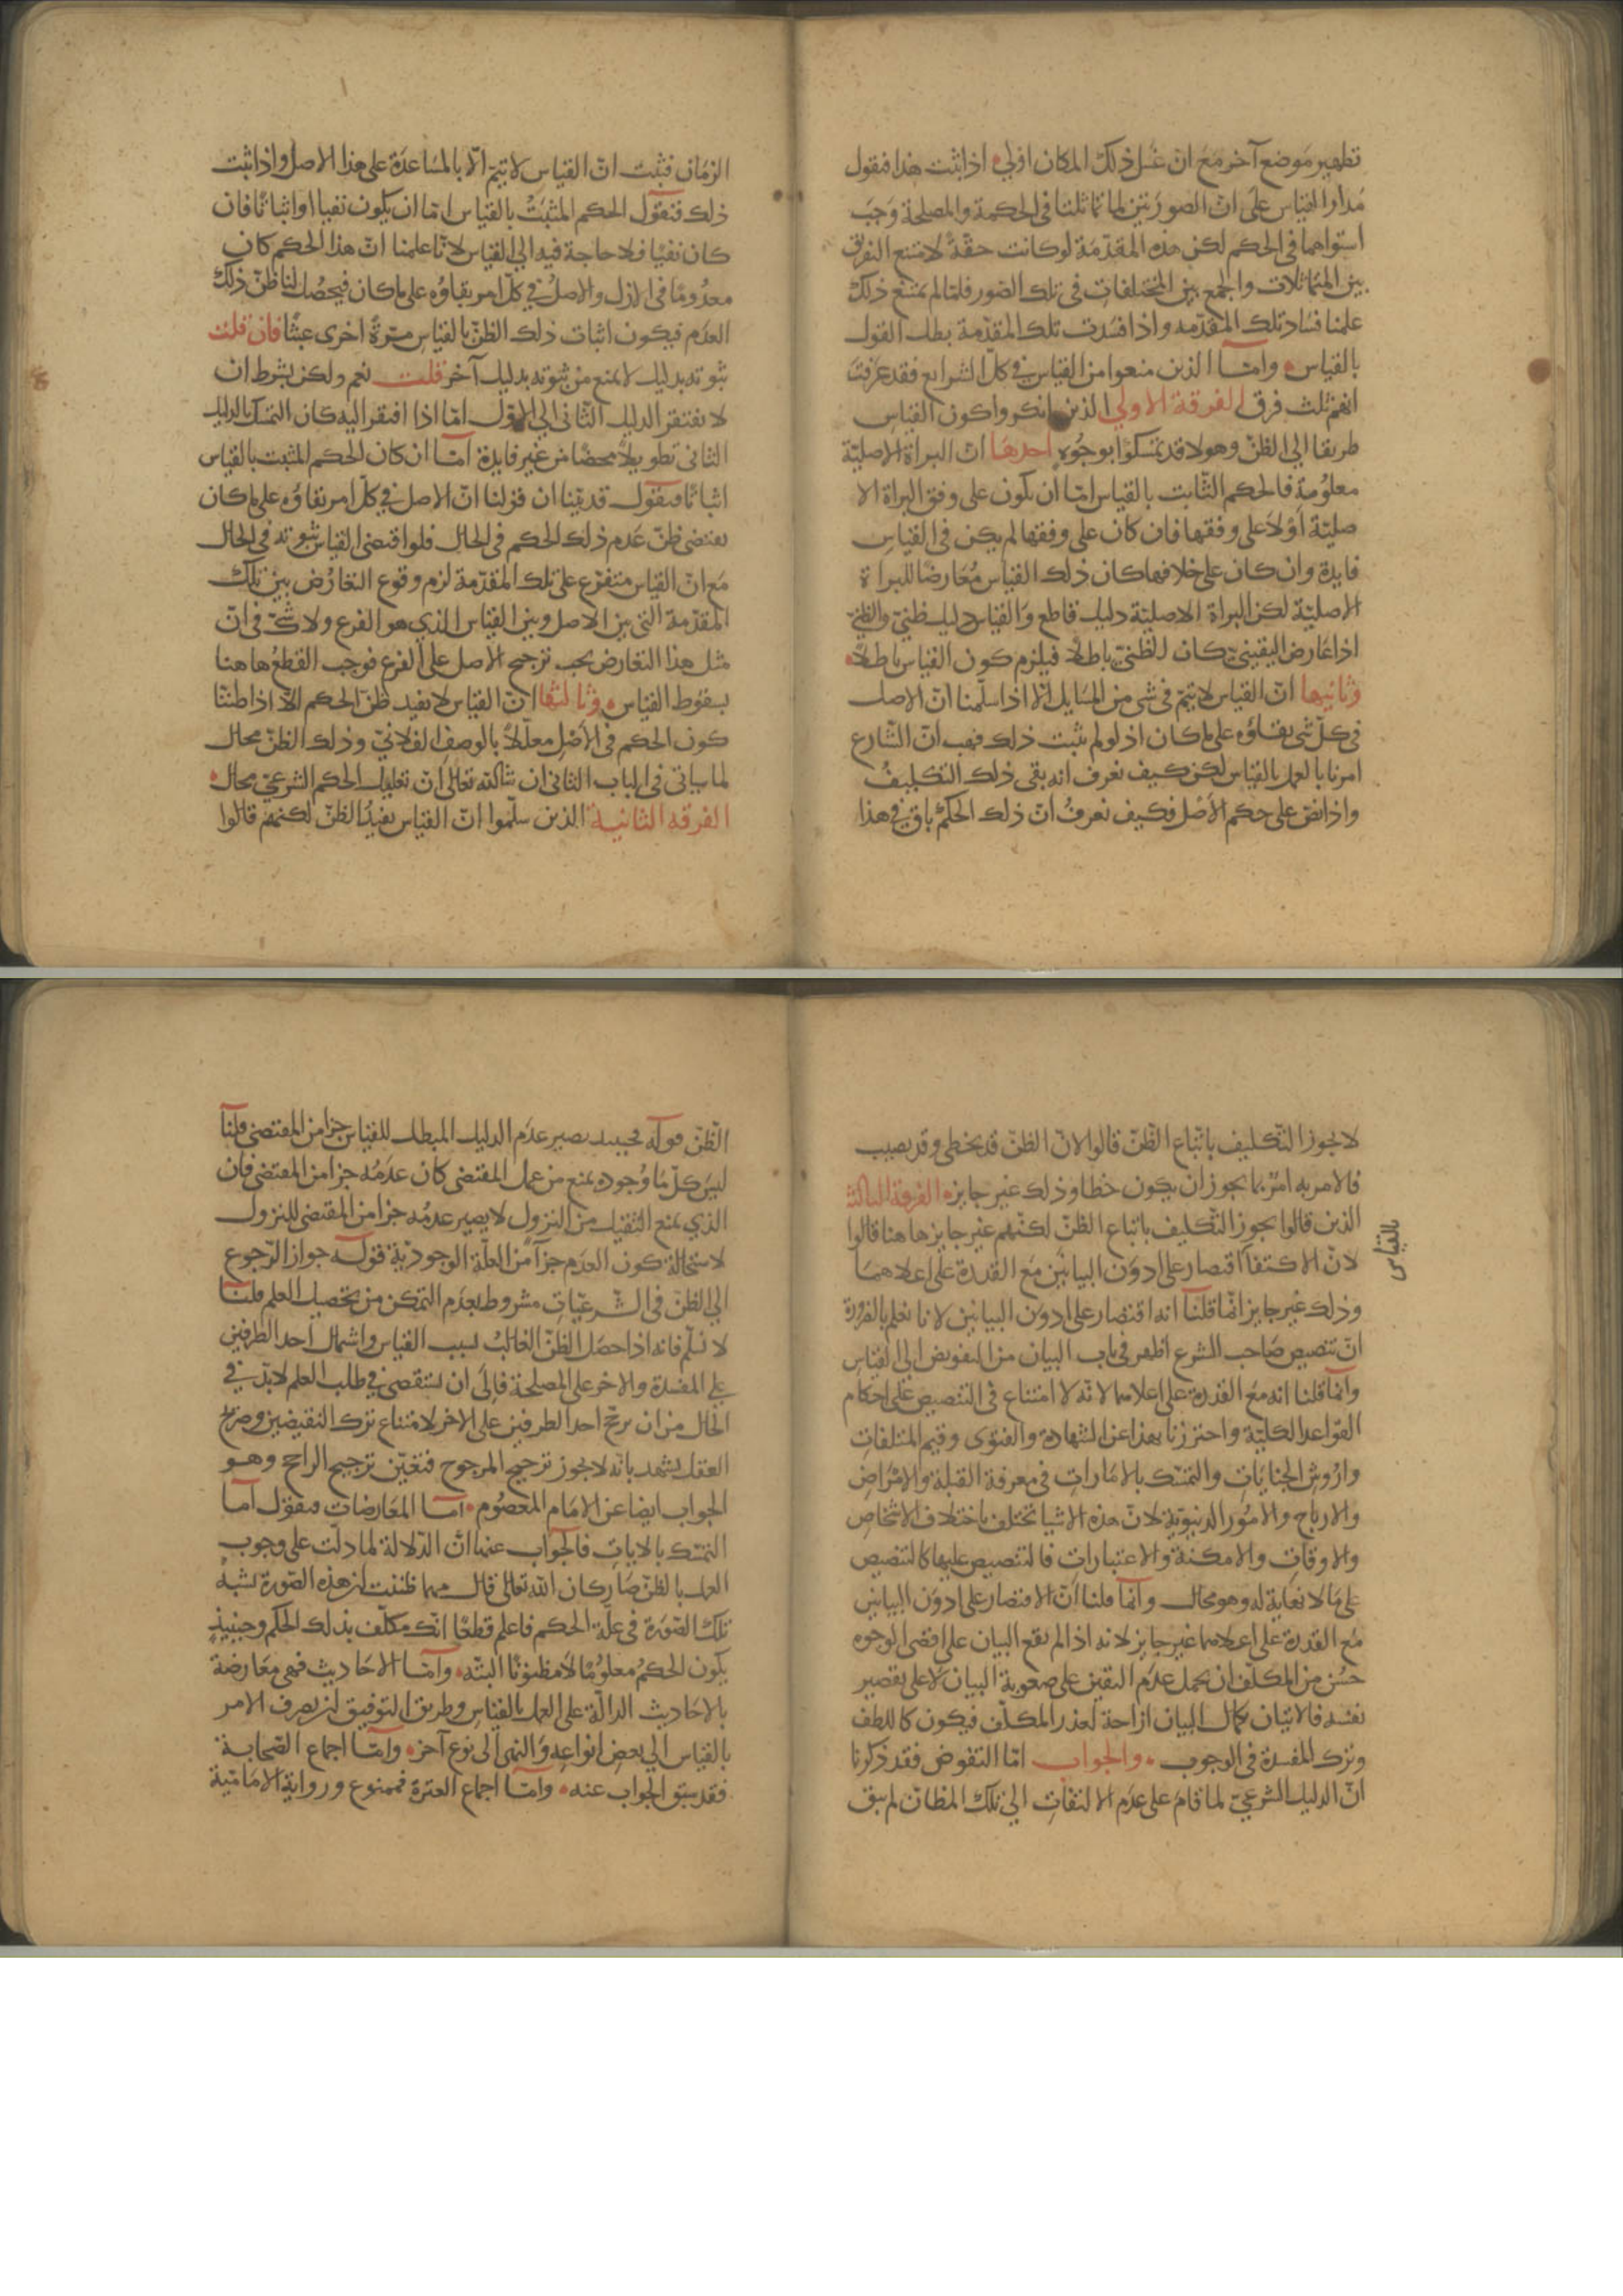 تطهير موضع آخر مع ان غسل ذلك المكان اولي اذا ثبت هذا فنقول
مدار القياس على ان الصورتين لما تماثلتا في الحكمة والمصلحة وجب
استواهما في الحكم لكن هذه المقدمة لو كانت حقة لامتنع التفرق
بين المتماثلات والجمع بين المختلفات في تلك الصور فلما لم يمتنع ذلك
علمنا فساد تلك المقدمه واذا فسدت تلك المقدمة بطل القول
بالقياس وامّا الذين منعوا من القياس في كل الشرايع فقد عرفت
انهم ثلث فرق الفرقة الاولي الذين انكروا كون القياس
طريقا الي الظن وهولا قد تمسكوا بوجوه احدها ان البراة الاصلية
معلومة فالحكم الثابت بالقياس امّا ان يكون على وفق البراة الا
صلية اولا على وفقها فان كان على وفقها لم يكن في القياس
فايدة وان كان على خلافها كان ذلك القياس معارضا للبراة
الاصلية لكن البراة الاصلية دليل قاطع والقياس دليل ظني والظني
اذا عارض اليقيني كان الظني باطلا فيلزم كون القياس باطلا
وثانيها ان القياس لا يتم في شي من المسايل الا اذا سلمنا ان الاصل
في كل شي بقاؤه على ما كان اذ لو لم يثبت ذلك فهب ان الشارع
امرنا بالعمل بالقياس لكن كيف نعرف انه بقي ذلك التكليف
واذا نص على حكم الاصل فكيف نعرف ان ذلك الحكم باق في هذا
الزمان فثبت ان القياس لا يتم الا بالمساعدة على هذا الاصل واذا ثبت
ذلك فنقول الحكم المثبت بالقياس امّا ان يكون نفيا او اثباتا فان
كان نفيا فلا حاجة فيه الي القياس لانا علمنا ان هذا الحكم كان
معدوما في الازل والاصل في كل امر بقاؤه على ما كان فيحصل لنا ظن ذلك
العدم فيكون اثبات ذلك الظن بالقياس مرة اخرى عبثا فان قلت
ثبوته بدليل لا يمنع من ثبوته بدليل آخر قلت نعم ولكن بشرط ان
لا يفتقر الدليل الثاني الي الاول امّا اذا افتقر اليه كان التمسك بالدليل
الثاني تطويلا محضا من غير فايدة امّا ان كان الحكم المثبت بالقياس
اثباتا فنقول قد بينا ان قولنا ان الاصل في كل امر بقاؤه على ما كان
يقتضي ظن عدم ذلك الحكم في الحال فلو اقتضى القياس ثبوته في الحال
مع ان القياس متفرع على تلك المقدمة لزم وقوع التعارض بين تلك
المقدمة التي هي الاصل وبين القياس الذي هو الفرع ولا شك في ان
مثل هذا التعارض يجب ترجيح الاصل على الفرع فوجب القطع هاهنا
بسقوط القياس وثالثها ان القياس لا يفيد ظن الحكم الا اذا ظننا
كون الحكم في الاصل معللا بالوصف الفلاني وذلك الظن محال
لما سياتي في الباب الثاني ان شا الله تعالى ان تعليل الحكم الشرعي محال
الفرقه الثانية الذين سلموا ان القياس يفيد الظن لكنهم قالوا
لا يجوز التكليف باتباع الظن قالوا لان الظن قد يخطي وقد يصيب
فالامر به امر بما يجوز ان يكون خطا وذلك غير جايز الفرقة الثالثة
الذين قالوا يجوز التكليف باتباع الظن لكنهم غير جايز هاهنا قالوا
بالقياس
لان الاكتفا اقتصار على ادون البيانين مع القدرة على اعلاهما
وذلك غير جايز انما قلنا انه اقتصار على ادون البيانين لانا نعلم بالضرورة
ان تنصيص صاحب الشرع اظهر في باب البيان من التفويض الي القياس
وانما قلنا انه مع القدرة على اعلاهما لانه لا امتناع في التنصيص على احكام
القواعد الكلية واحترزنا بهذا عن الشهادة والفتوى وقيم المتلفات
واروش الجنايات والتمسك بالامارات في معرفة القبلة والامراض
والارباح والامور الدنيوية لان هذه الاشيا تختلف باختلاف الاشخاص
والاوقات والامكنة والاعتبارات فالتنصيص عليها كالتنصيص
على ما لا نهاية له وهو محال وانما قلنا ان الاقتصار على ادون البيانين
مع القدرة على اعلاهما غير جايز لانه اذا لم يقع البيان على اقصى الوجوه
حسن من المكلف ان يحمل عدم التقين على صعوبة البيان لا على تقصير
نفسه فالاتيان بكمال البيان ازاحة لعذر المكلف فيكون كاللطف
وترك المفسدة في الوجوب والجواب امّا النقوض فقد ذكرنا
ان الدليل الشرعي لما قام على عدم الالتفات الي تلك المظان لم يبق
الظن قوله فحينيذ يصير عدم الدليل المبطل للقياس جزا من المقتضى قلنا
ليس كل ما وجوده يمنع من عمل المقتضى كان عدمه جزا من المقتضى فان
الذي يمنع الثقيل من النزول لا يصير عدمه جزا من المقتضي للنزول
لاستحالة كون العدم جزا من العلة الوجودية قوله جواز الرجوع
الي الظن في الشرعيات مشروط بعدم التمكن من تحصيل العلم قلنا
لا نسلم فانه اذا حصل الظن الغالب بسبب القياس واشتمال احد الطرفين
على المفسدة والاخر على المصلحة فالى ان يستقصي في طلب العلم لابد في
الحال من ان يرجح احد الطرفين على الاخر لامتناع ترك النقيضين وصريح
العقل يشهد بانه لا يجوز ترجيح المرجوح فتعين ترجيح الراجح وهو
الجواب ايضا عن الامام المعصوم امّا المعارضات فنقول امّا
التمسك بالايات فالجواب عنها ان الدلالة لما دلت على وجوب
العمل بالظن صار كان الله تعالى قال مهما ظننت ان هذه الصورة تشبه
تلك الصورة في علة الحكم فاعلم قطعا انك مكلف بذلك الحكم وحينيذ
يكون الحكم معلوما لا مظنونا البتة وامّا الاحاديث فهي معارضة
بالاحاديث الدالة على العمل بالقياس وطريق التوفيق ان يصرف الامر
بالقياس الي بعض انواعه والنهي الى نوع آخر وامّا اجماع الصحابة
فقد سبق الجواب عنه وامّا اجماع العترة فممنوع ورواية الامامية